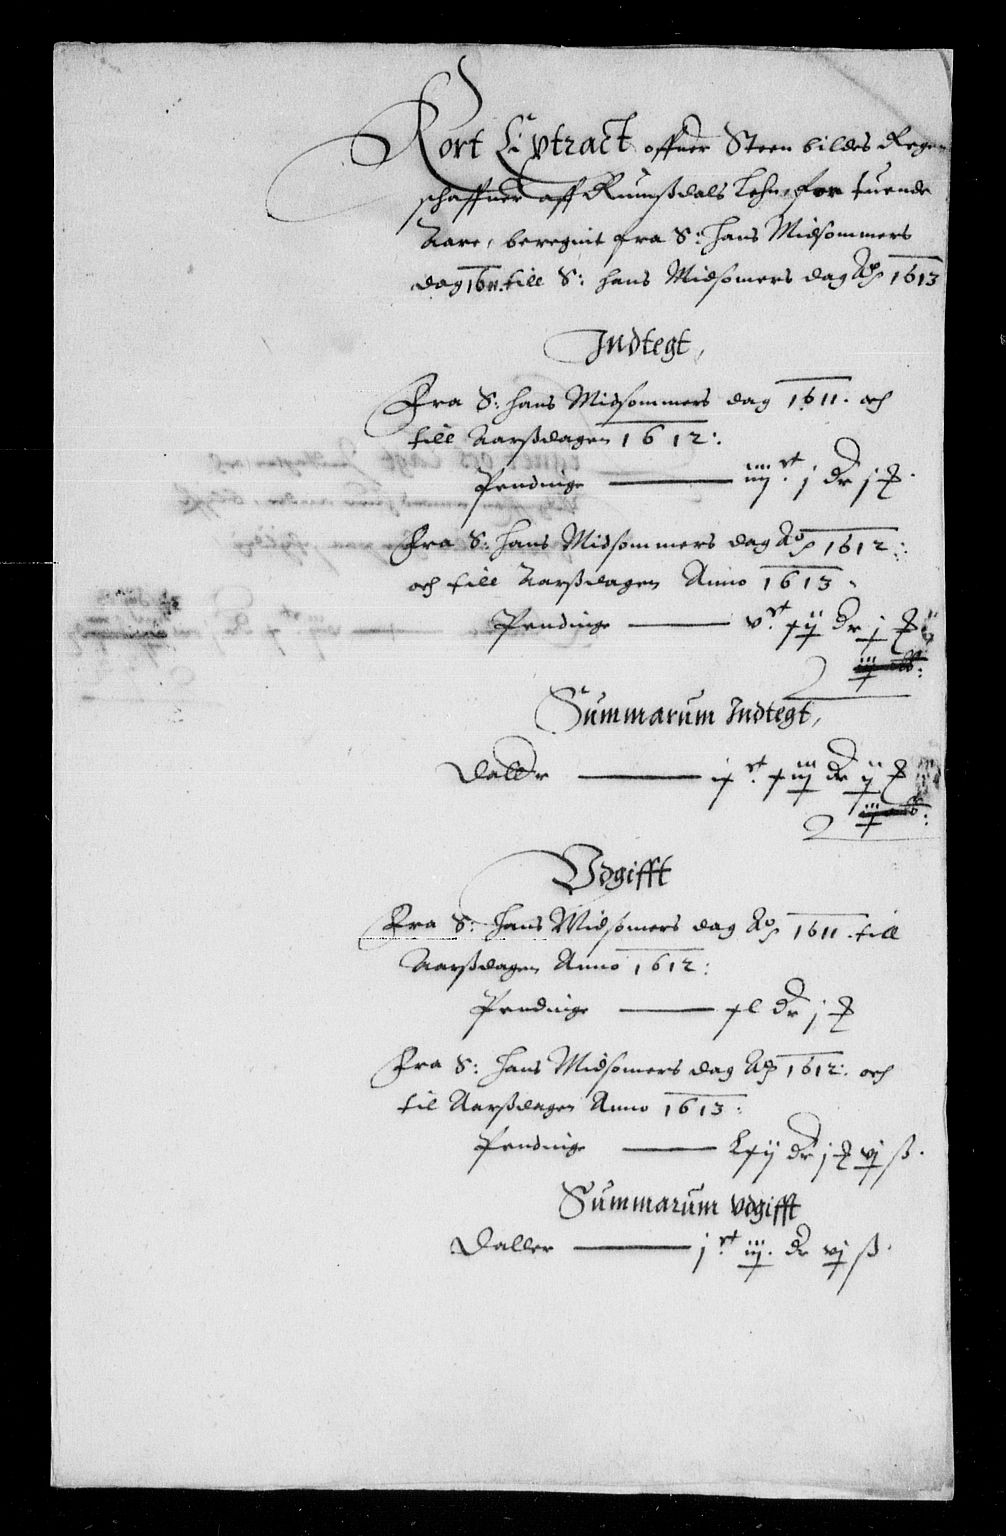 Kort Extract offuer Steen billdes Regen
schaffuer aff Rumßdals Lehn, for tuende
Aare, beregnit fra S: Hans Midsommers
dag 1611. till S: Hans Midsomers dag Ao 1613
Indtegt,
Fra S: Hans Midsommers dag 1611. och
till Aarßdagen 1612:
Pendinge —— iiijct. j dr j
Fra S: Hans Midsommers dag Ao 1612:
och till Aarßdagen Anno 1613.
Pendinge —— vct. dr j
Summarum Indtegt,
Daller —— dr
Vdgifft
Fra S: Hans Midsomers dag Ao 1611. till
Aarßdagen Anno 1612:
Pendinge —— dr j
Fra S: Hans Midsomers dag Ao 1612: och
til Aarßdagen Anno 1613:
Pendinge —— dr j vj ß.
Summarum vdgifft
Daller —— jct. dr vj ß.